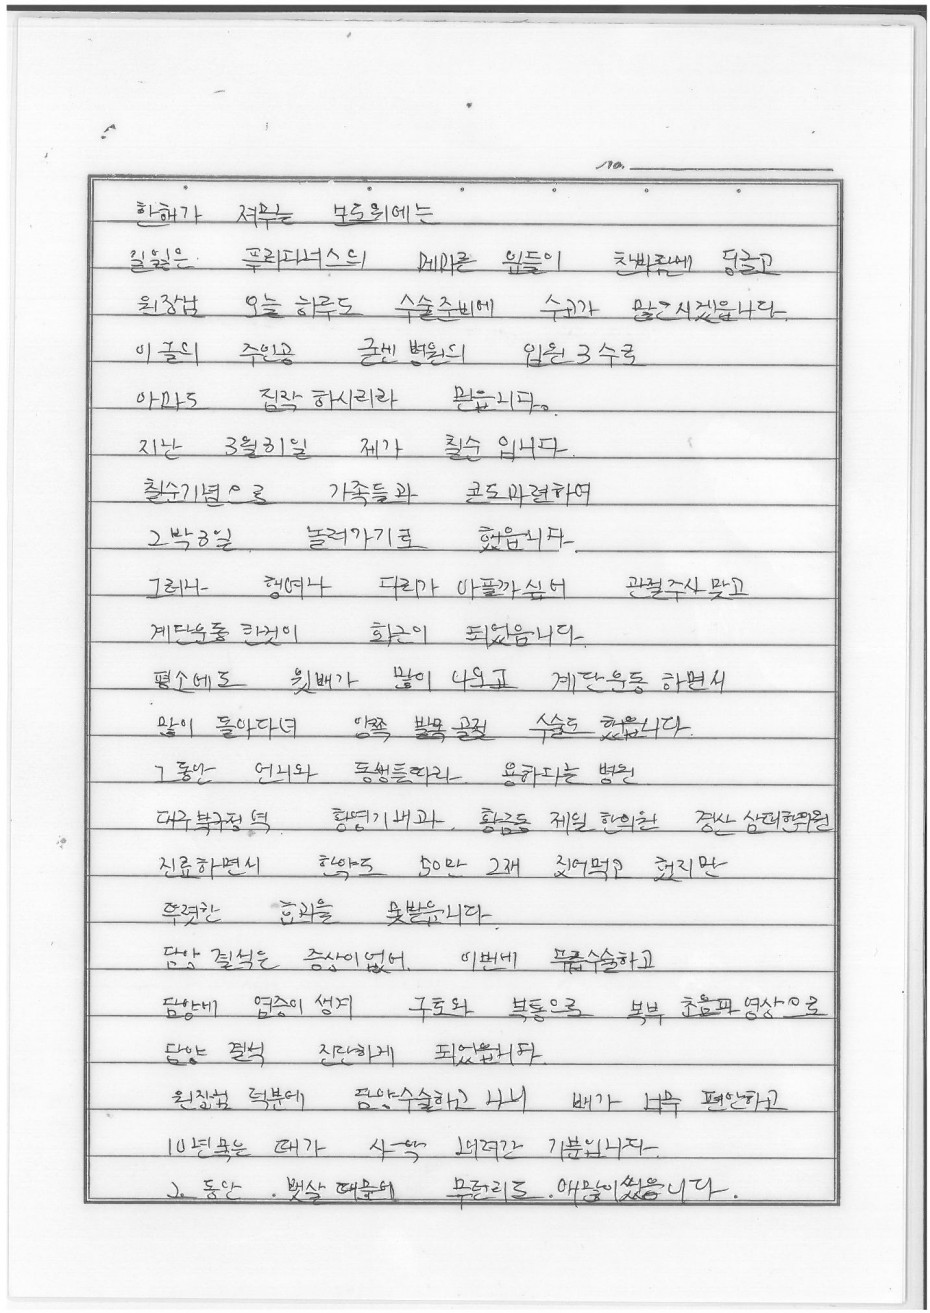 No.
한해가 저무는 보도위에는
길잃은 푸라타너스의 메마른 잎들이 찬바람에 뒹굴고
원장님 오늘 하루도 수술준비에 수고가 많으시겠읍니다.
이 글의 주인공 굳센병원의 입원 3수로
아마도 짐작 하시리라 믿읍니다.
지난 3월31일 제가 칠순 입니다.
칠순기념으로 가족들과 콘도마련하여
2박3일 놀러가기로 했읍니다.
그러나 행여나 다리가 아플까싶어 관절주사맞고
계단운동 한것이 화근이 되었읍니다.
평소에도 윗배가 많이 나오고 계단운동 하면서
많이 돌아다녀 양쪽 발목골절 수술도 했읍니다.
그동안 언니와 동생들따라 용하다는 병원
대구북구청역 황영기내과. 황금동 제일한의원 경산 삼대한의원
진료하면서 한약도 50만 2재 짓어먹고 했지만
뚜렷한 효과을 못봤읍니다.
담양 결석은 증상이없어. 이번에 무릎수술하고
담양에 염증이생겨 구토와 복통으로 복부 초음파영상으로
담양 결석 진단하게 되었읍니다.
원장님 덕분에 담양수술하고 나니 배가 너무 편안하고
10년묵은 때가 사악 내려간 기분입니다.
그동안. 뱃살때문에 무던히도. 애많이썼읍니다.